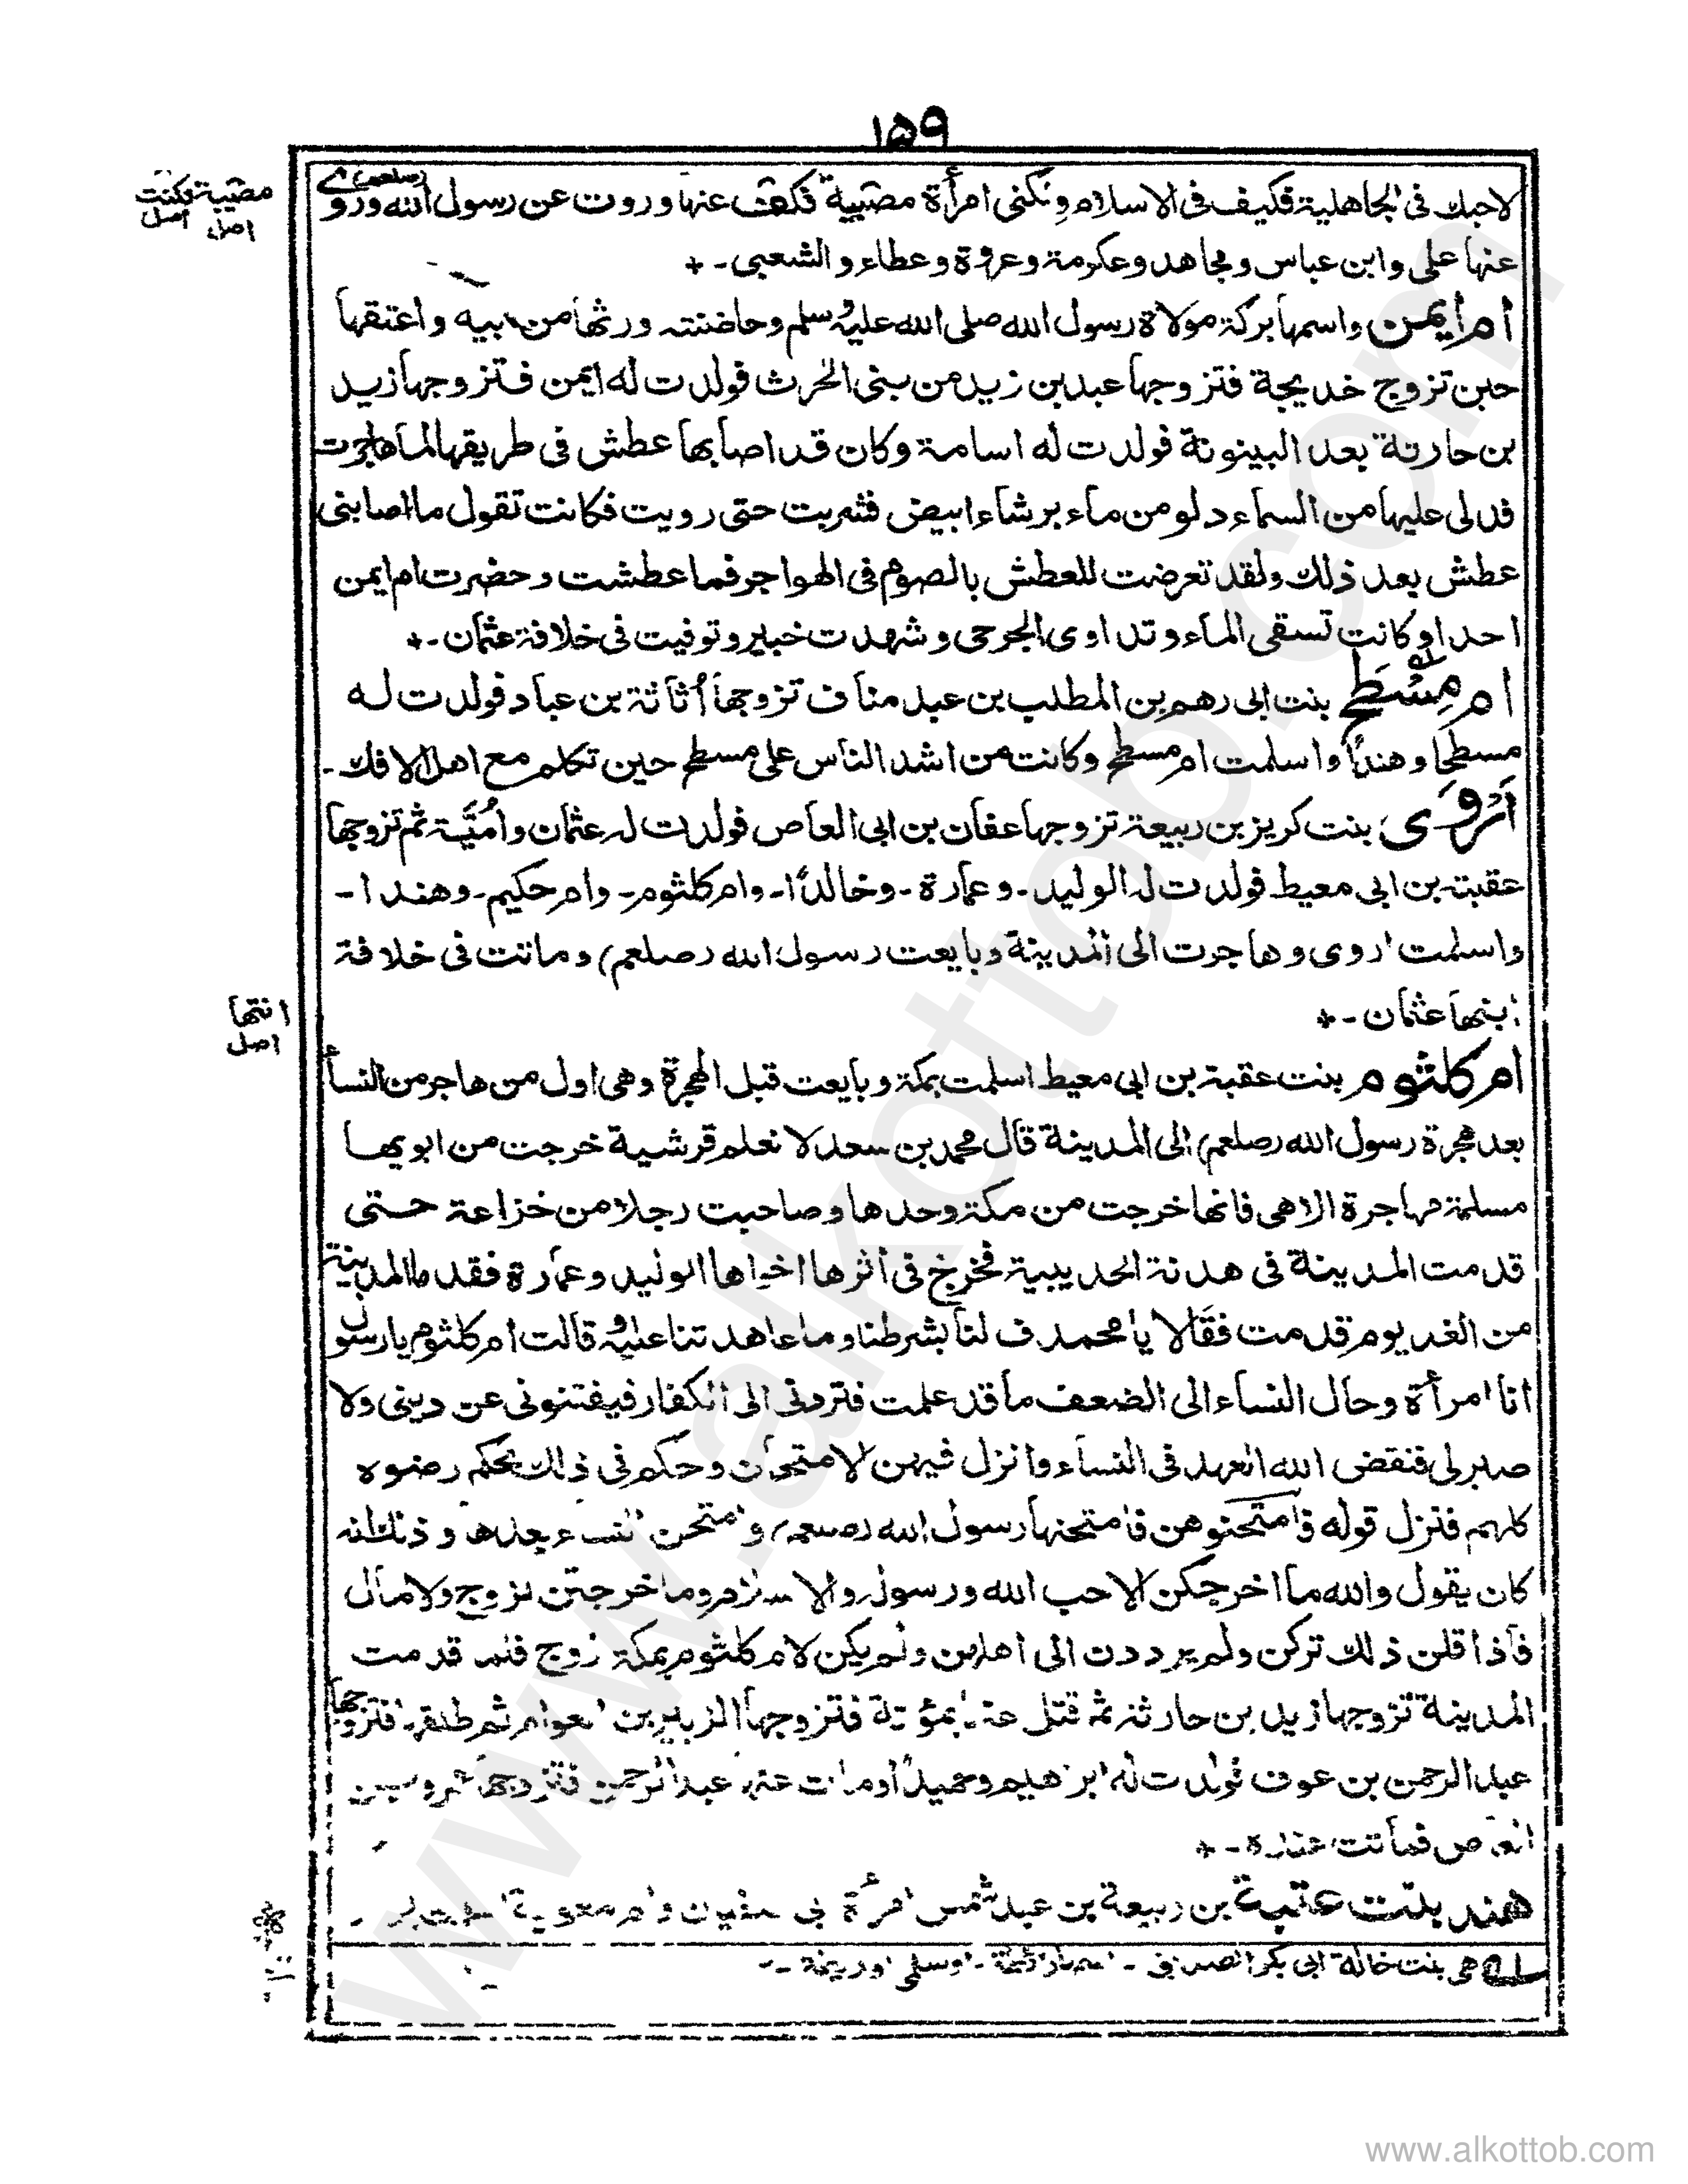 ١٥٩
لاحبك فى الجاهلية فكيف فى الاسلام ولكنى امرأة مصبية فكفت عنها وروت عن رسول الله (صلعم) وروى
مصيبة فكنت
اصل اصل
عنها على وابن عباس ومجاهد وعكرمة وعروة وعطاء والشعبى -
أم أيمن واسمها بركة مولاة رسول الله صلى الله عليه وسلم وحاضنته ورثها من ابيه واعتقها
حين تزوج خديجة فتزوجها عبد بن زيد من بنى الحرث فولدت له ايمن فتزوجها زيد
بن حارثة بعد البينونة فولدت له اسامة وكان قد اصابها عطش فى طريقها لما هاجرت
فدلى عليها من السماء دلو من ماء برشاء ابيض فشربت حتى رويت فكانت تقول ما اصابنى
عطش بعد ذلك ولقد تعرضت للعطش بالصوم فى الهواجر فما عطشت وحضرت ام ايمن
احدا وكانت تسقى الماء وتداوى الجرحى وشهدت خيبر وتوفيت فى خلافة عثمان -
ام مِسْطَح بنت ابى رهم بن المطلب بن عبد مناف تزوجها أثاثة بن عباد فولدت له
مسطحا وهنداً واسلمت ام مسطح وكانت من اشد الناس على مسطح حين تكلم مع اهل الافك -
أَرْوَى بنت كريز بن ربيعة تزوجها عفان بن ابى العاص فولدت له عثمان واُميَّة ثم تزوجها
عقبة بن ابى معيط فولدت له الوليد - وعمارة - وخالدًا - وام كلثوم - وام حكيم - وهندا -
واسلمت اروى وهاجرت الى المدينة وبايعت رسول الله (صلعم) وماتت فى خلافة
ابنها عثمان -
انتها
اصل
ام كلثوم بنت عقبة بن ابى معيط اسلمت بمكة وبايعت قبل الهجرة وهى اول من هاجر من النسأ
بعد هجرة رسول الله (صلعم) الى المدينة قال محمد بن سعد لا نعلم قرشية خرجت من ابويها
مسلمة مهاجرة الا هى فانها خرجت من مكة وحدها وصاحبت رجلا من خزاعة حتى
قدمت المدينة فى هدنة الحديبية فخرج فى أثرها اخواها الوليد وعمارة فقدما المدينة
من الغد يوم قدمت فقالا يا محمد ف لنا بشرطنا وما عاهدتنا عليه قالت أم كلثوم يا رسول
انا امرأة وحال النساء الى الضعف ما قد علمت فتردنى الى الكفار فيفتنونى عن دينى ولا
صبر لى فنقض الله العهد فى النساء وانزل فيهن الامتحان وحكم فى ذلك بحكم رضوه
كلهم فنزل قوله فامتحنوهن فامتحنها رسول الله (صلعم) وامتحن النساء بعدها وذلك انه
كان يقول والله ما اخرجكن الا حب الله ورسوله والاسلام وما خرجتن لزوج ولا مال
فاذا قلن ذلك تركن ولم يرددن الى اهلهن ولم يكن لام كلثوم بمكة زوج فلما قدمت
المدينة تزوجها زيد بن حارثة ثم قتل عنها بمؤتة فتزوجها الزبير بن العوام ثم طلقها فتزوجها
عبد الرحمن بن عوف فولدت له ابراهيم وحميدًا ومات عنها عبد الرحمن فتزوجها عمرو بن
العاص فماتت عنده -
هند بنت عتبة بن ربيعة بن عبد شمس امرأة ابى سفيان وام معوية
له هى بنت خالة ابى بكر الصديق - اسمها رائطة - او سلمى او ريمة -
www.alkottob.com
www.alkottob.com